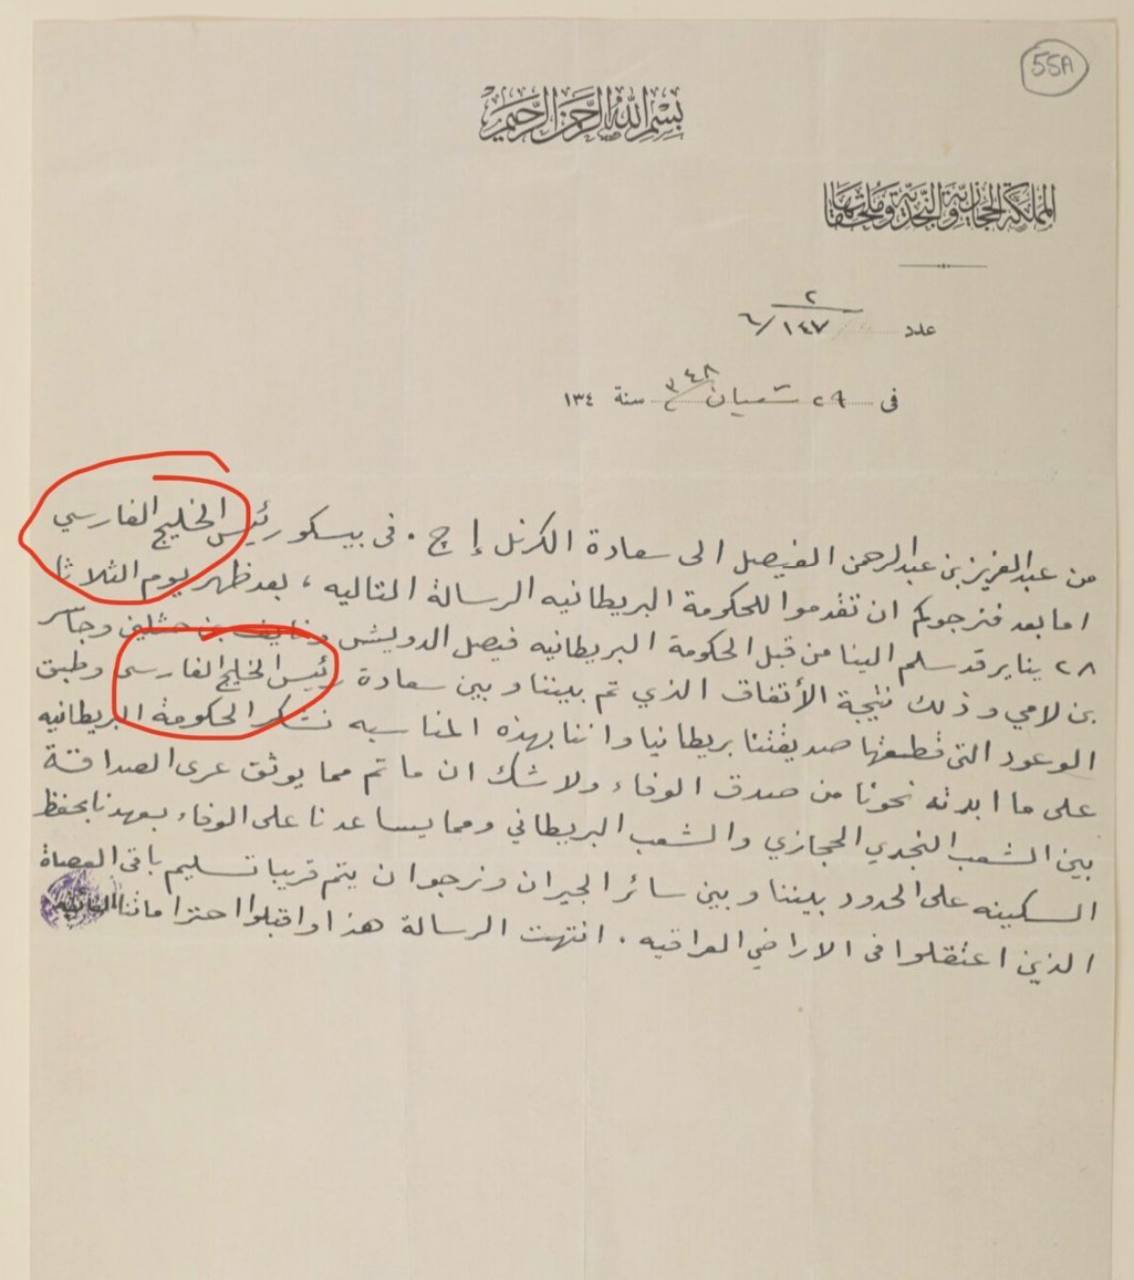 55A
بسم الله الرحمن الرحيم
المملكة الحجازية والنجدية وملحقاتها
٢
عدد ٦/١٤٧
فى ٢٩ شعبان ٣٤٨ سنة ١٣٤
من عبد العزيز بن عبد الرحمن الفيصل الى سعادة الكرنل إ ج . فى بيسكو رئيس الخليج الفارسي
اما بعد فنرجوكم ان تقدموا للحكومة البريطانيه الرسالة التاليه ، بعد ظهر يوم الثلاثا
٢٨ يناير قد سلم الينا من قبل الحكومة البريطانيه فيصل الدويش ونايف بن حثلين وجاسر
بن لامي وذلك نتيجة الأتفاق الذي تم بيننا وبين سعادة رئيس الخليج الفارسي وطبق
الوعود التى قطعتها صديقتنا بريطانيا واننا بهذه المناسبه نشكر الحكومة البريطانيه
على ما ابدته نحونا من صدق الوفاء ولا شك ان ما تم مما يوثق عرى الصداقة
بين الشعب النجدي الحجازي والشعب البريطاني ومما يساعدنا على الوفاء بعهدنا بحفظ
السكينه على الحدود بيننا وبين سائر الجيران ونرجوا ان يتم قريبا تسليم باقى العصاة
الذين اعتقلوا فى الاراضي العراقيه . انتهت الرسالة هذا واقبلوا احتراماتنا الفائقه